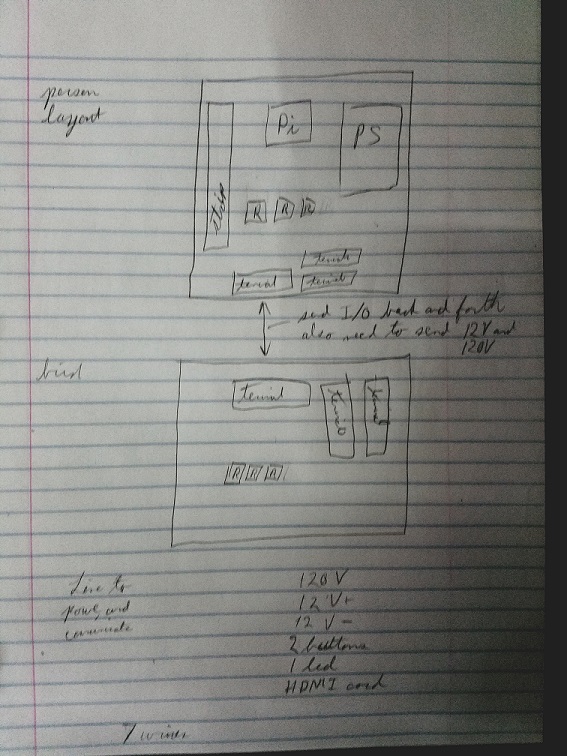 person
layout
Pi
PS
strip
R R R
terminal
terminal
terminal
send I/O back and forth
also need to send 12V and
120V
bird
terminal
terminal
terminal
R R R
Line to
power, and
communicate
120 V
12 V+
12 V-
2 buttons
1 led
HDMI cord
7 wires